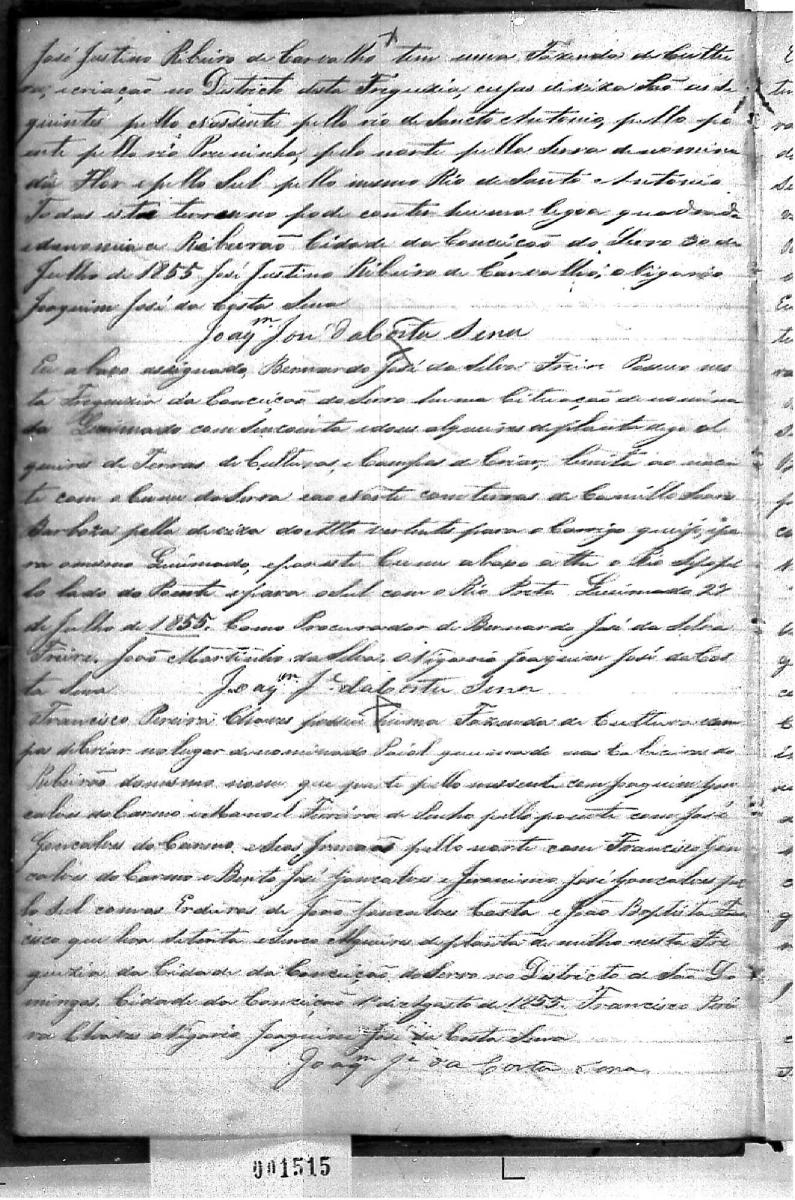 José Justino Ribeiro de Carvalho tem uma Fazenda de Cultu
ra, e criação no Districto desta Freguezia, cujas divizas São as se
guintes pello Nassente pello rio de Sancto Antonio, pello po
ente pello rio Preuinho, pelo norte pella Serra denomina
da Flor e pello Sul pello mesmo Rio de Santo Antonio
Todas este terreno pode conter huma legoa quadrada
e denomina Ribeirão Cidade da Conceição do Serro 30 de
Julho de 1855, José Justino Ribeiro de Carvalho, o Vigario
Joaquim José da Costa Sena
Joaqm José da Costa Sena
Eu abaxo assignado, Bernardo José da Silva Freire Possuo nes
ta Freguezia da Conceição do Serro huma Cituação denomina
da Queimado com Sincoenta e dous alqueires de planta digo al
queires de Terras de Culturas, e Campos de Criar, limita ao nacen
te com o Cume da Serra e ao Norte com terras de Camillo
Barboza pella diviza do Alto vertente para o Corrigo que
ra o mesmo Queimado, e por este Cume abaxo athe o Rio
lo lado do Poente e para o Sul com o Rio Preto Queimado 22
de Julho de 1855. Como Procurador de Bernardo José da Silva
Freire. João Martinho da Silva. o Vigario Joaquim José da Cos
ta Sena Joaqm Je da Costa Sena
Francisco Pereira Chaves possue huma Fazenda de Cultura e cam
pos de Criar no lugar denominado Paiol que na Cabiceira do
Ribeirão do mesmo nome, que parte pello nassente com Joaquim Gon
calves do Carmo e Manoel Ferreira de pello poente com José
Goncalves do Carmo, e seos Jrmaos pello norte com Francisco Gon
calves do Carmo e Bento José Goncalves e Jeronimo José Goncalves pe
lo Sul com os Erdeiros de João Goncalves Costa e João Baptista Fran
cisco que leva setenta e sinco Alqueires de planta de milho nesta Fre
guezia da Cidade da Conceição do Serro no Districto de São Do
mingos. Cidade da Conceição 1º de Agosto de 1855. Francisco Perei
ra Chaves o Vigario Joaquim José da Costa Sena
Joaqm Je da Costa Sena
001515